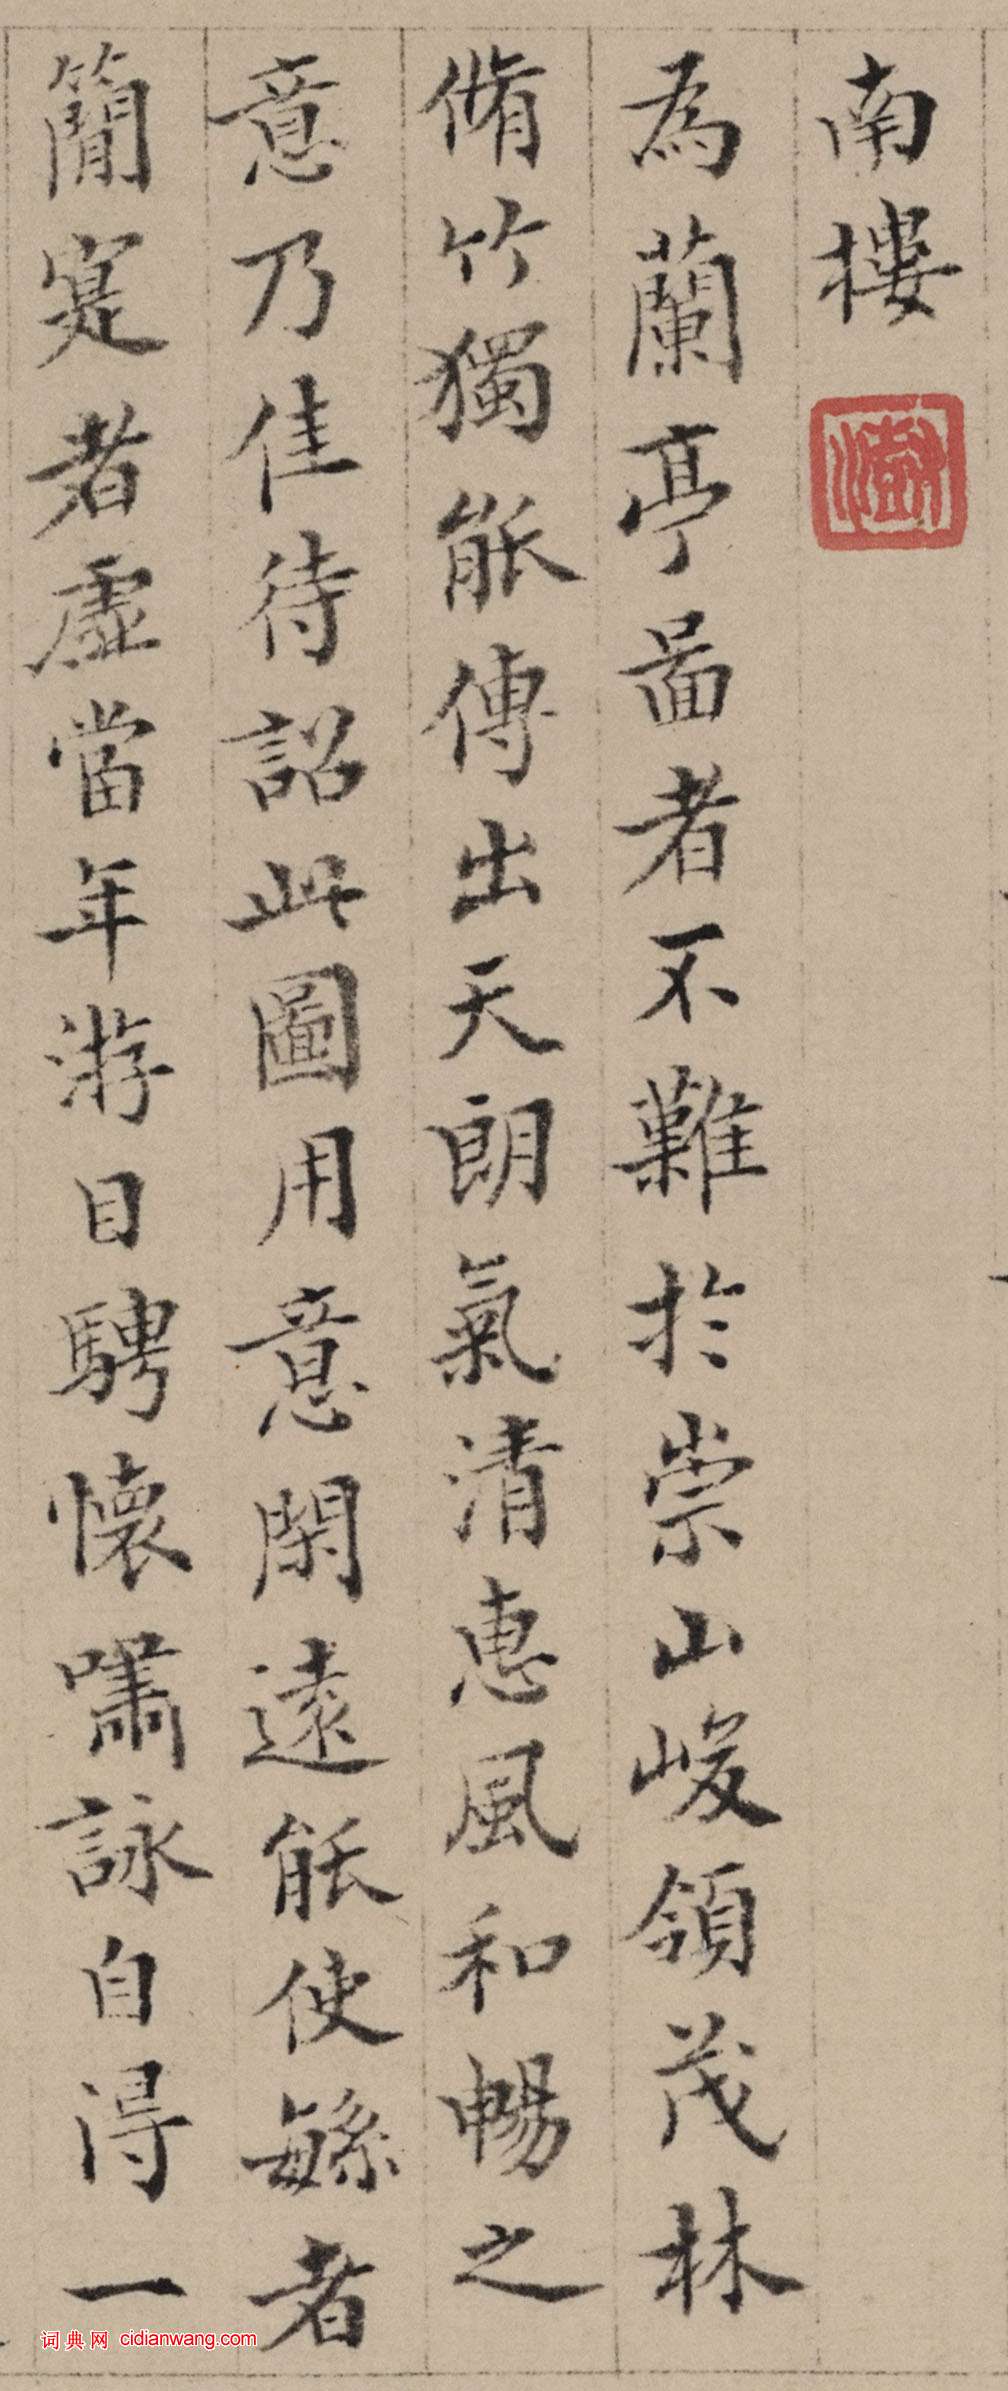 南樓
為蘭亭啚者不難於崇山峻領茂林
脩竹獨能傳出天朗氣清惠風和暢之
意乃佳待詔此圖用意閑遠能使繇者
簡寔者虛當年游目騁懷嘯詠自得一
词典网 cidianwang.com